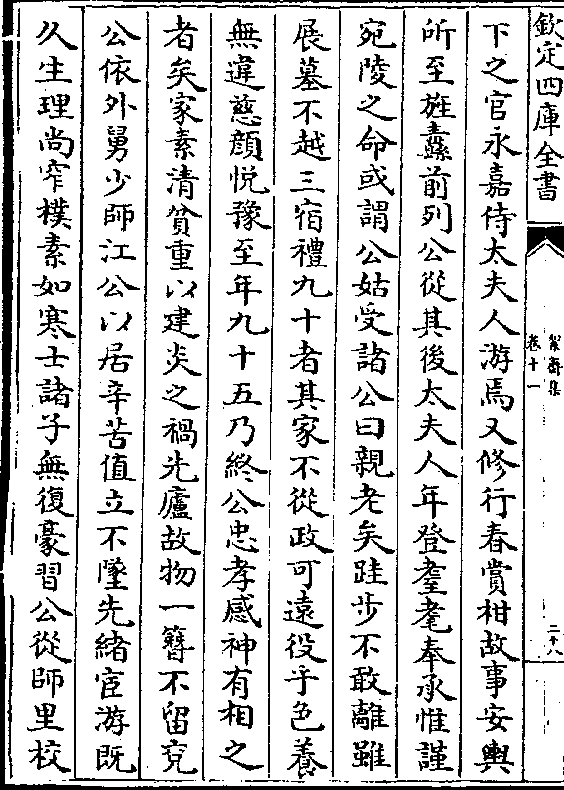 欽定四庫全書
絜齋集
卷十一
二十八
下之官永嘉侍太夫人游焉又修行春賞柑故事安輿
所至旌纛前列公從其後太夫人年登耋耄奉承惟謹
宛陵之命或謂公姑受諸公曰親老矣跬步不敢離雖
展墓不越三宿禮九十者其家不從政可遠役乎色養
無違慈顔悦豫至年九十五乃終公忠孝感神有相之
者矣家素清貧重以建炎之禍先廬故物一簪不留兖
公依外舅少師江公以居辛苦值立不墜先緒宦游既
久生理尚窄樸素如寒士諸子無復豪習公從師里校